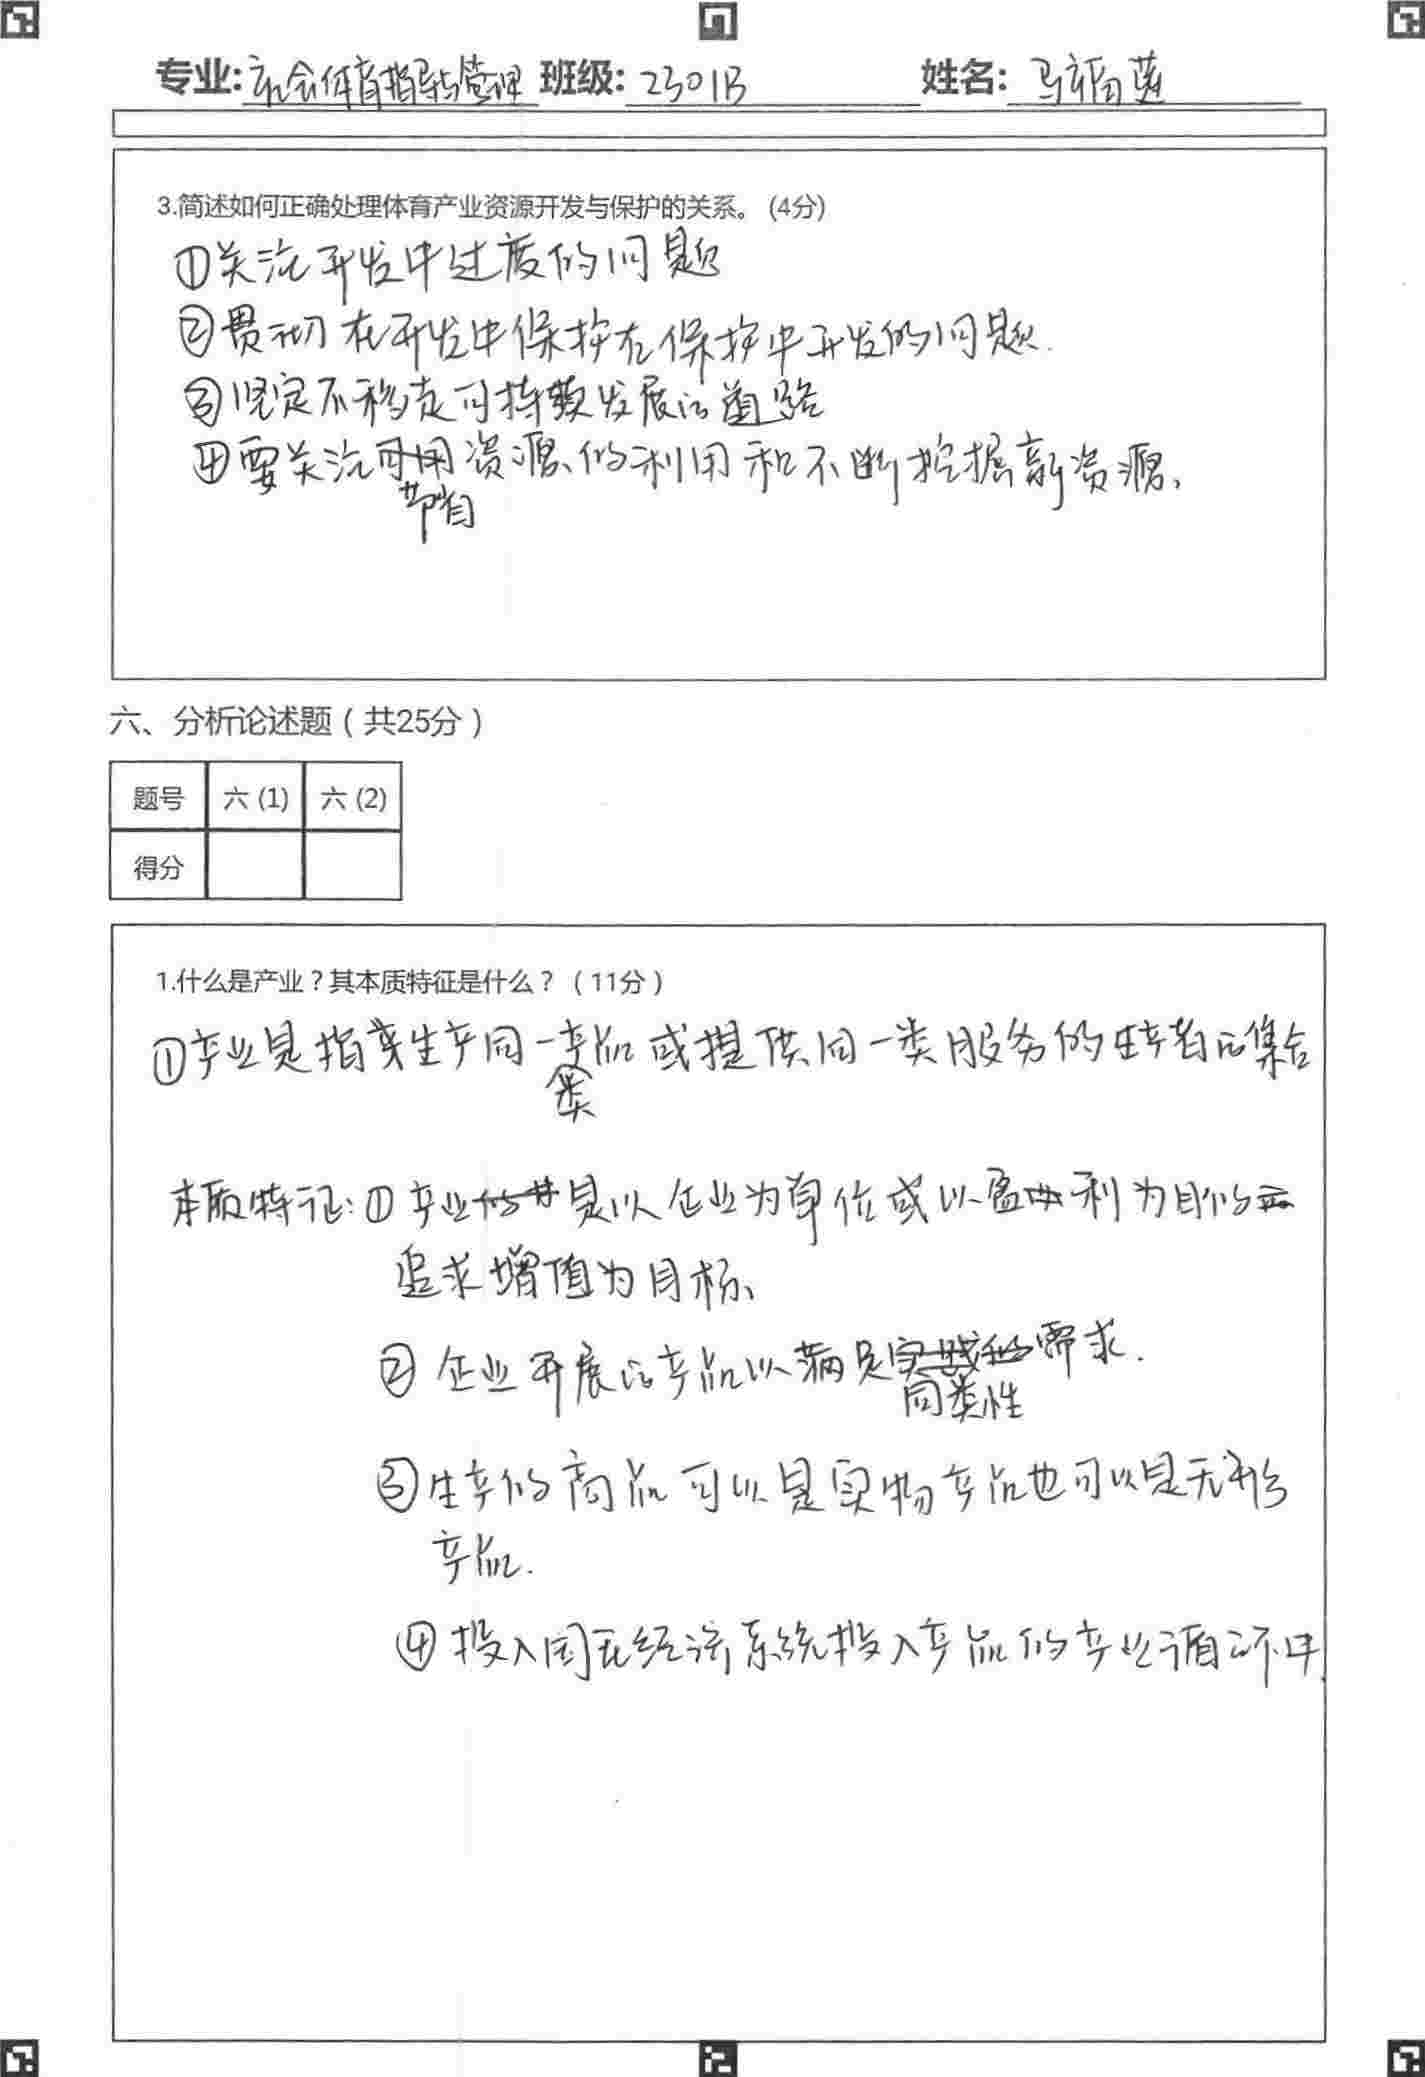 专业:社会体育指导与管理 班级:2301B 姓名:马福莲
3.简述如何正确处理体育产业资源开发与保护的关系。(4分)
①关注开发中过度的问题
②贯彻在开发中保护在保护中开发的问题.
③坚定不移走可持续发展的道路
④要关注可用资源的利用和不断挖掘新资源、
节省
六、分析论述题(共25分)
题号 六(1) 六(2)
得分
1.什么是产业?其本质特征是什么?(11分)
①产业是指类生产同一产品或提供同一类服务的生产者的集合
类
本质特征:①产业是以企业为单位或以盈利为目的
追求增值为目标、
②企业开展的产品以满足需求.
同类性
③生产的商品可以是实物产品也可以是无形
产品.
④投入国民经济系统投入产品的产业循环中.